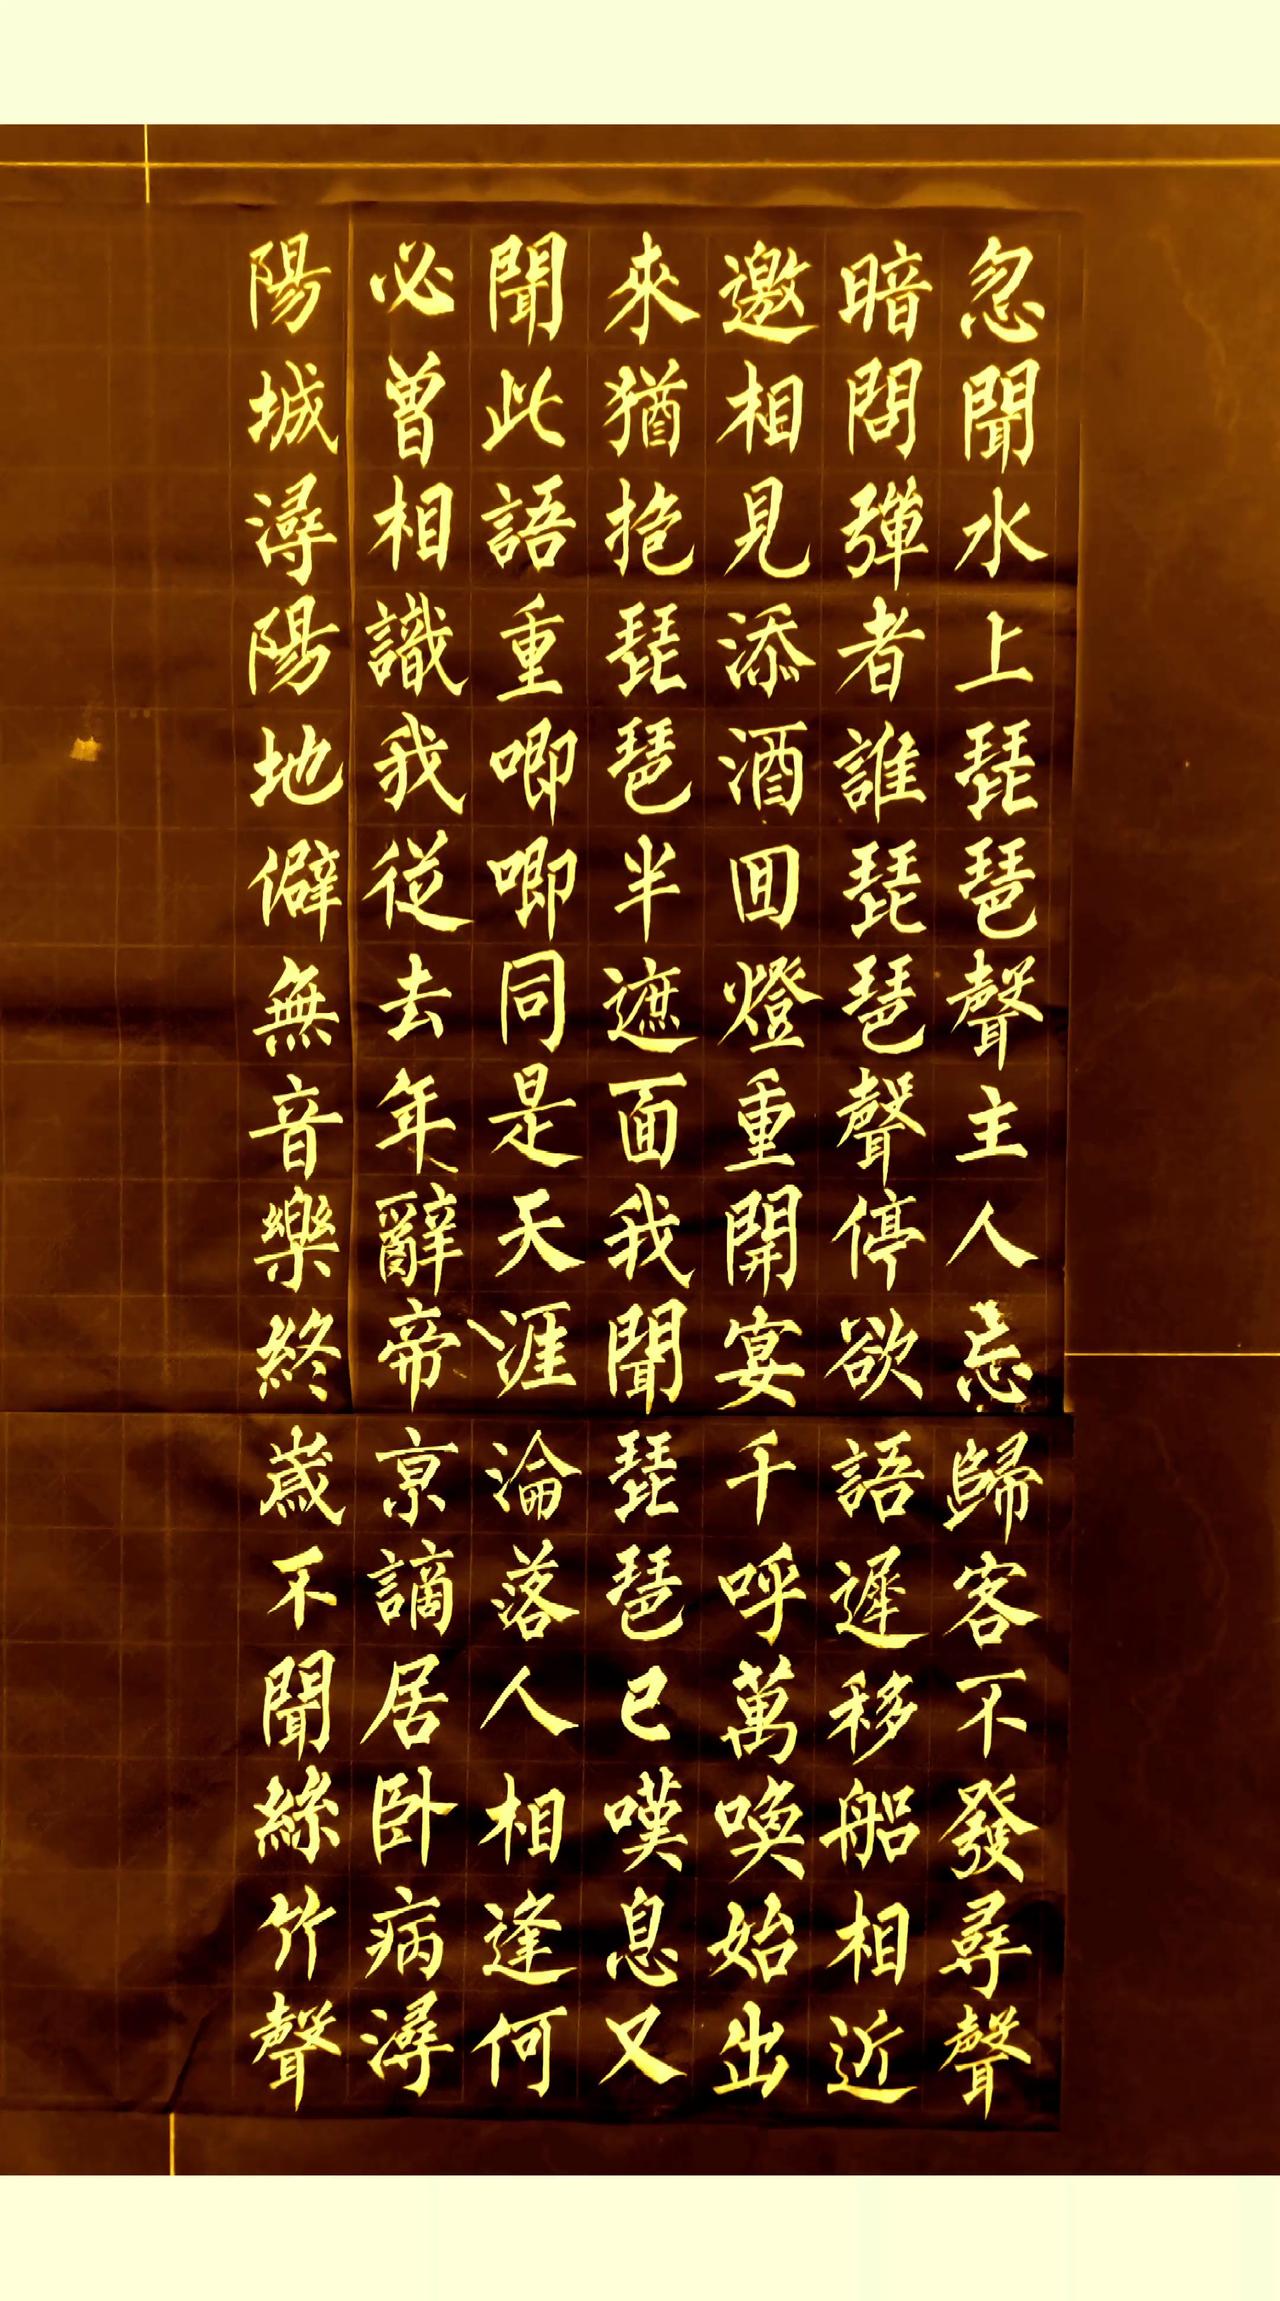 忽聞水上琵琶聲主人忘歸客不發尋聲
暗問彈者誰琵琶聲停欲語遲移船相近
邀相見添酒回燈重開宴千呼萬喚始出
來猶抱琵琶半遮面我聞琵琶已嘆息又
聞此語重唧唧同是天涯淪落人相逢何
必曾相識我從去年辭帝京謫居卧病潯
陽城潯陽地僻無音樂終歲不聞絲竹聲